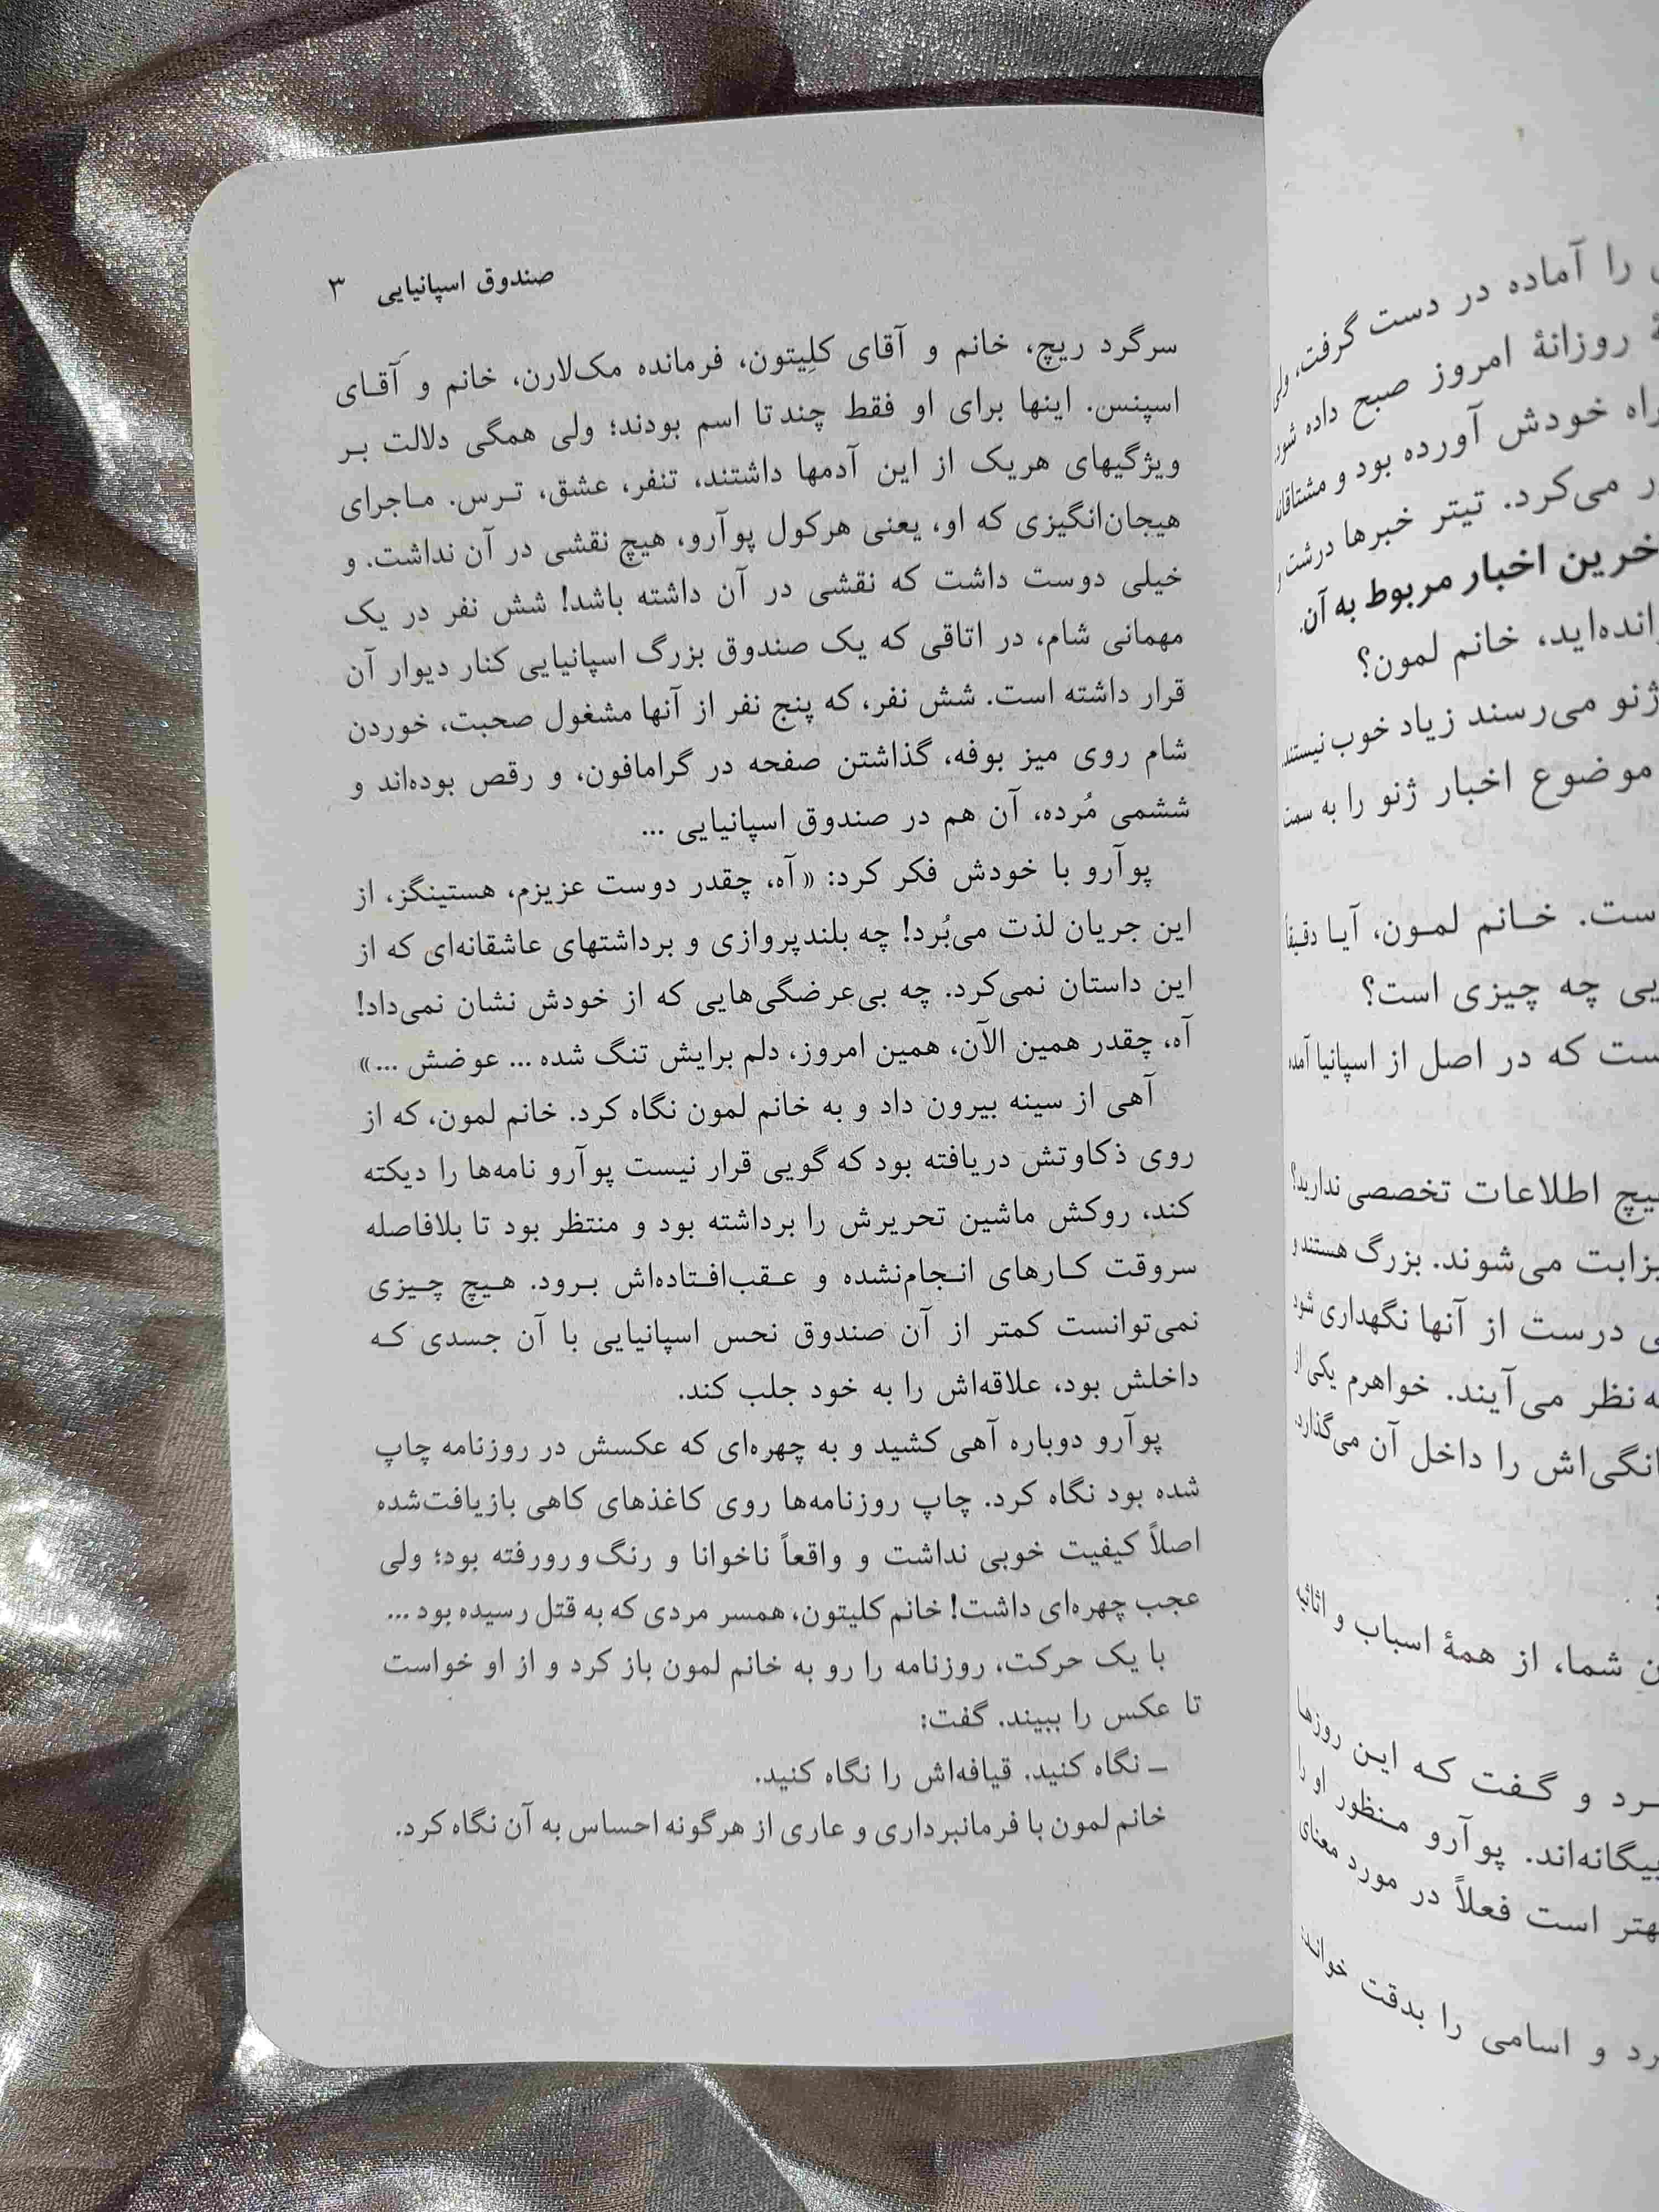 صندوق اسپانیایی ۳
سرگرد ریچ، خانم و آقای کلِیتون، فرمانده مک‌لارن، خانم و آقای
اسپنس. اینها برای او فقط چندتا اسم بودند؛ ولی همگی دلالت بر
ویژگیهای هریک از این آدمها داشتند، تنفر، عشق، ترس. ماجرای
هیجان‌انگیزی که او، یعنی هرکول پوآرو، هیچ نقشی در آن نداشت. و
خیلی دوست داشت که نقشی در آن داشته باشد! شش نفر در یک
مهمانی شام، در اتاقی که یک صندوق بزرگ اسپانیایی کنار دیوار آن
قرار داشته است. شش نفر، که پنج نفر از آنها مشغول صحبت، خوردن
شام روی میز بوفه، گذاشتن صفحه در گرامافون، و رقص بوده‌اند و
ششمی مُرده، آن هم در صندوق اسپانیایی ...
پوآرو با خودش فکر کرد: «آه، چقدر دوست عزیزم، هستینگز، از
این جریان لذت می‌بُرد! چه بلندپروازی و برداشتهای عاشقانه‌ای که از
این داستان نمی‌کرد. چه بی‌عرضگی‌هایی که از خودش نشان نمی‌داد!
آه، چقدر همین الآن، همین امروز، دلم برایش تنگ شده ... عوضش ...»
آهی از سینه بیرون داد و به خانم لمون نگاه کرد. خانم لمون، که از
روی ذکاوتش دریافته بود که گویی قرار نیست پوآرو نامه‌ها را دیکته
کند، روکش ماشین تحریرش را برداشته بود و منتظر بود تا بلافاصله
سروقت کارهای انجام‌نشده و عقب‌افتاده‌اش برود. هیچ چیزی
نمی‌توانست کمتر از آن صندوق نحس اسپانیایی با آن جسدی که
داخلش بود، علاقه‌اش را به خود جلب کند.
پوآرو دوباره آهی کشید و به چهره‌ای که عکسش در روزنامه چاپ
شده بود نگاه کرد. چاپ روزنامه‌ها روی کاغذهای کاهی بازیافت‌شده
اصلاً کیفیت خوبی نداشت و واقعاً ناخوانا و رنگ‌ورورفته بود؛ ولی
عجب چهره‌ای داشت! خانم کلیتون، همسر مردی که به قتل رسیده بود ...
با یک حرکت، روزنامه را رو به خانم لمون باز کرد و از او خواست
تا عکس را ببیند. گفت:
ــ نگاه کنید. قیافه‌اش را نگاه کنید.
خانم لمون با فرمانبرداری و عاری از هرگونه احساس به آن نگاه کرد.
را آماده در دست گرفت، ولی
روزانهٔ امروز صبح داده شود
خودش آورده بود و مشتاقان
می‌کرد. تیتر خبرها درشت
اخبار مربوط به آن.
خانم لمون؟
ژنو می‌رسند زیاد خوب نیستند
موضوع اخبار ژنو را به سمت
خانم لمون، آیا دقیقاً
چه چیزی است؟
که در اصل از اسپانیا آمده
اطلاعات تخصصی ندارید؟
می‌شوند. بزرگ هستند و
درست از آنها نگهداری شود
نظر می‌آیند. خواهرم یکی از
را داخل آن می‌گذارد.
شما، از همهٔ اسباب و اثاثیه
و گفت که این روزها
پوآرو منظور او را
است فعلاً در مورد معنای
و اسامی را بدقت خواند